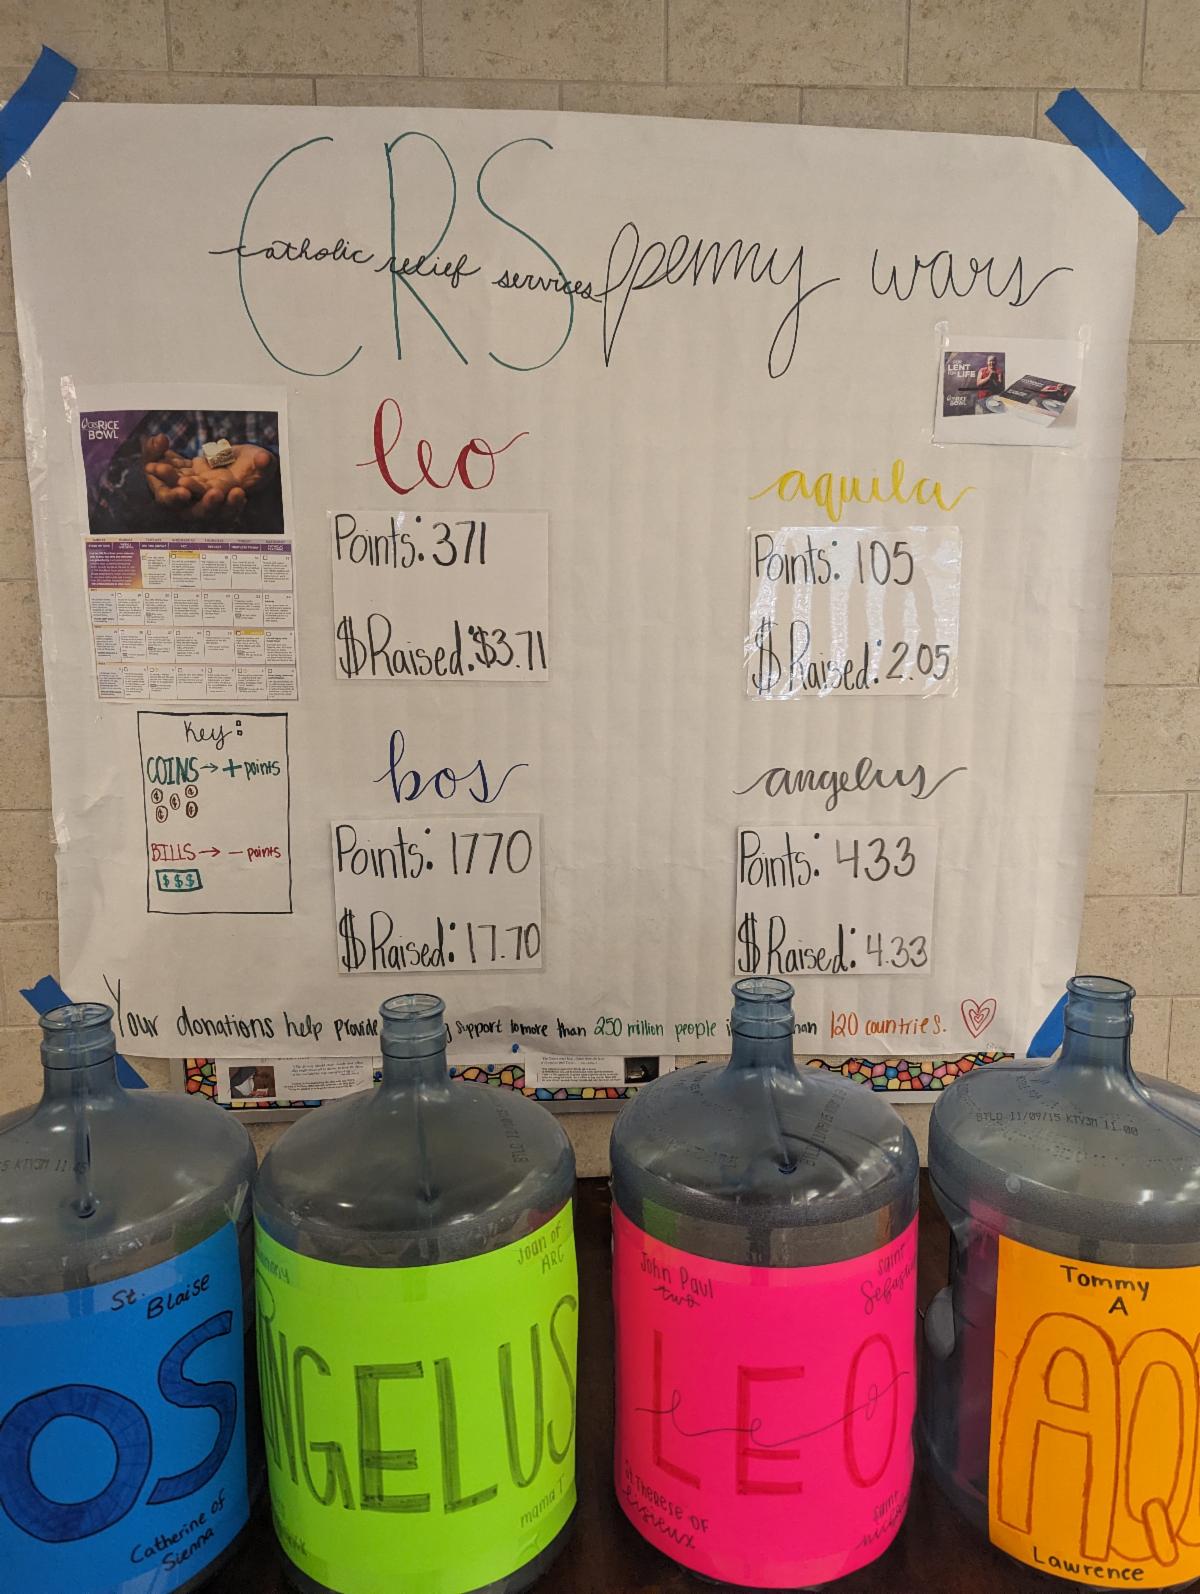 CRS
catholic relief services
penny wars
CRS RICE
BOWL
LENT
FOR LIFE
leo
Points: 371
$ Raised: $3.71
aquila
Points: 105
$ Raised: 2.05
Key:
COINS → + points
BILLS → - points
$$$
bos
Points: 1770
$ Raised: 17.70
angelus
Points: 433
$ Raised: 4.33
Your donations help provide support to more than 250 million people 120 countries.
BTLD 11/09/15 KTY3M 11:00
St. Blaise
OS
Catherine of
Sienna
Joan of
ARC
ANGELUS
mama T
John Paul
two
Saint
LEO
leo
St. Therese of
lisieux
saint
Tommy
A
AQ
Lawrence